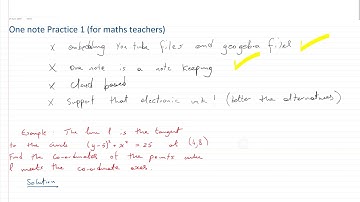 One note Practice 1 (for maths teachers)
X embedding You tube files and geogebra files
X One note is a note keeping
X Cloud based
X Support that electronic ink ! (better the alternatives)
Example: The line l is the tangent
to the circle (y-5)² + x² = 25 at (4,8)
Find the co-ordinates of the points where
l meets the co-ordinate axes.
Solution